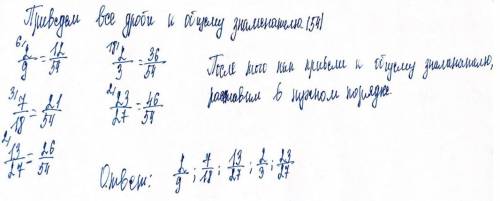 Приведем все дроби к общему знаменателю (54)
6) 2/9 = 12/54
18) 2/3 = 36/54
3) 7/18 = 21/54
2) 23/27 = 46/54
2) 13/27 = 26/54
После того как привели к общему знаменателю,
расставим в нужном порядке
Ответ: 2/9; 7/18; 13/27; 2/3; 23/27